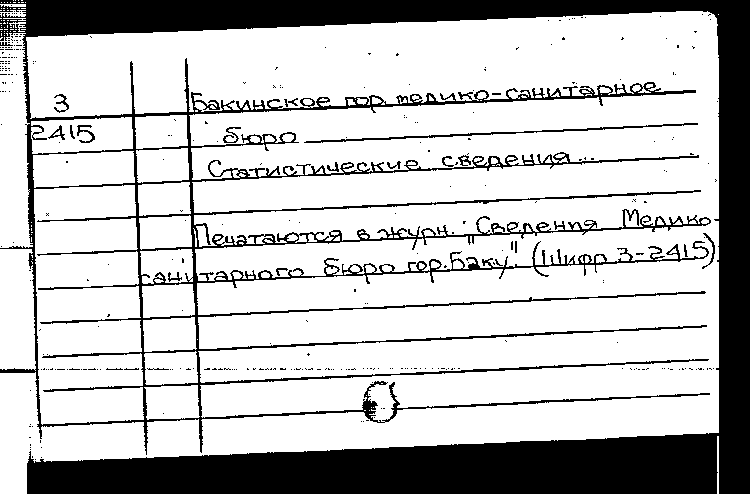 3
2415
Бакинское гор. медико-санитарное
бюро
Статистические сведения...
Печатаются в журн.: "Сведения Медико-
санитарного бюро гор. Баку." (Шифр 3-2415).